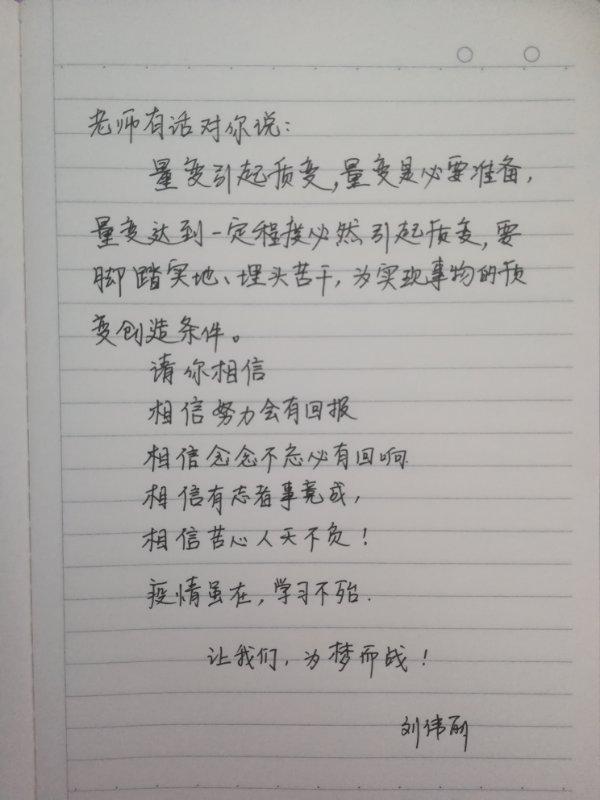 老师有话对你说：
量变引起质变，量变是必要准备，
量变达到一定程度必然引起质变，要
脚踏实地、埋头苦干，为实现事物的质
变创造条件。
请你相信
相信努力会有回报
相信念念不忘必有回响
相信有志者事竟成，
相信苦心人天不负！
疫情虽在，学习不殆.
让我们，为梦而战！
刘伟丽